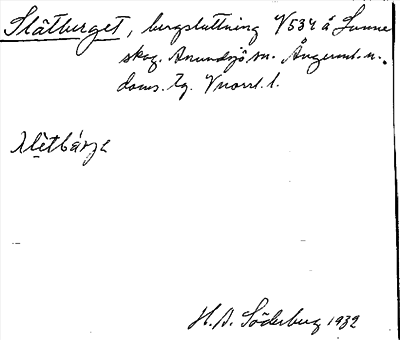 Slätberget, bergsluttning V534 å Sunne
skog. Anundsjö sn. Ångerml. n.
doms. tg. Vnorrl. l.
H. A. Söderberg 1932